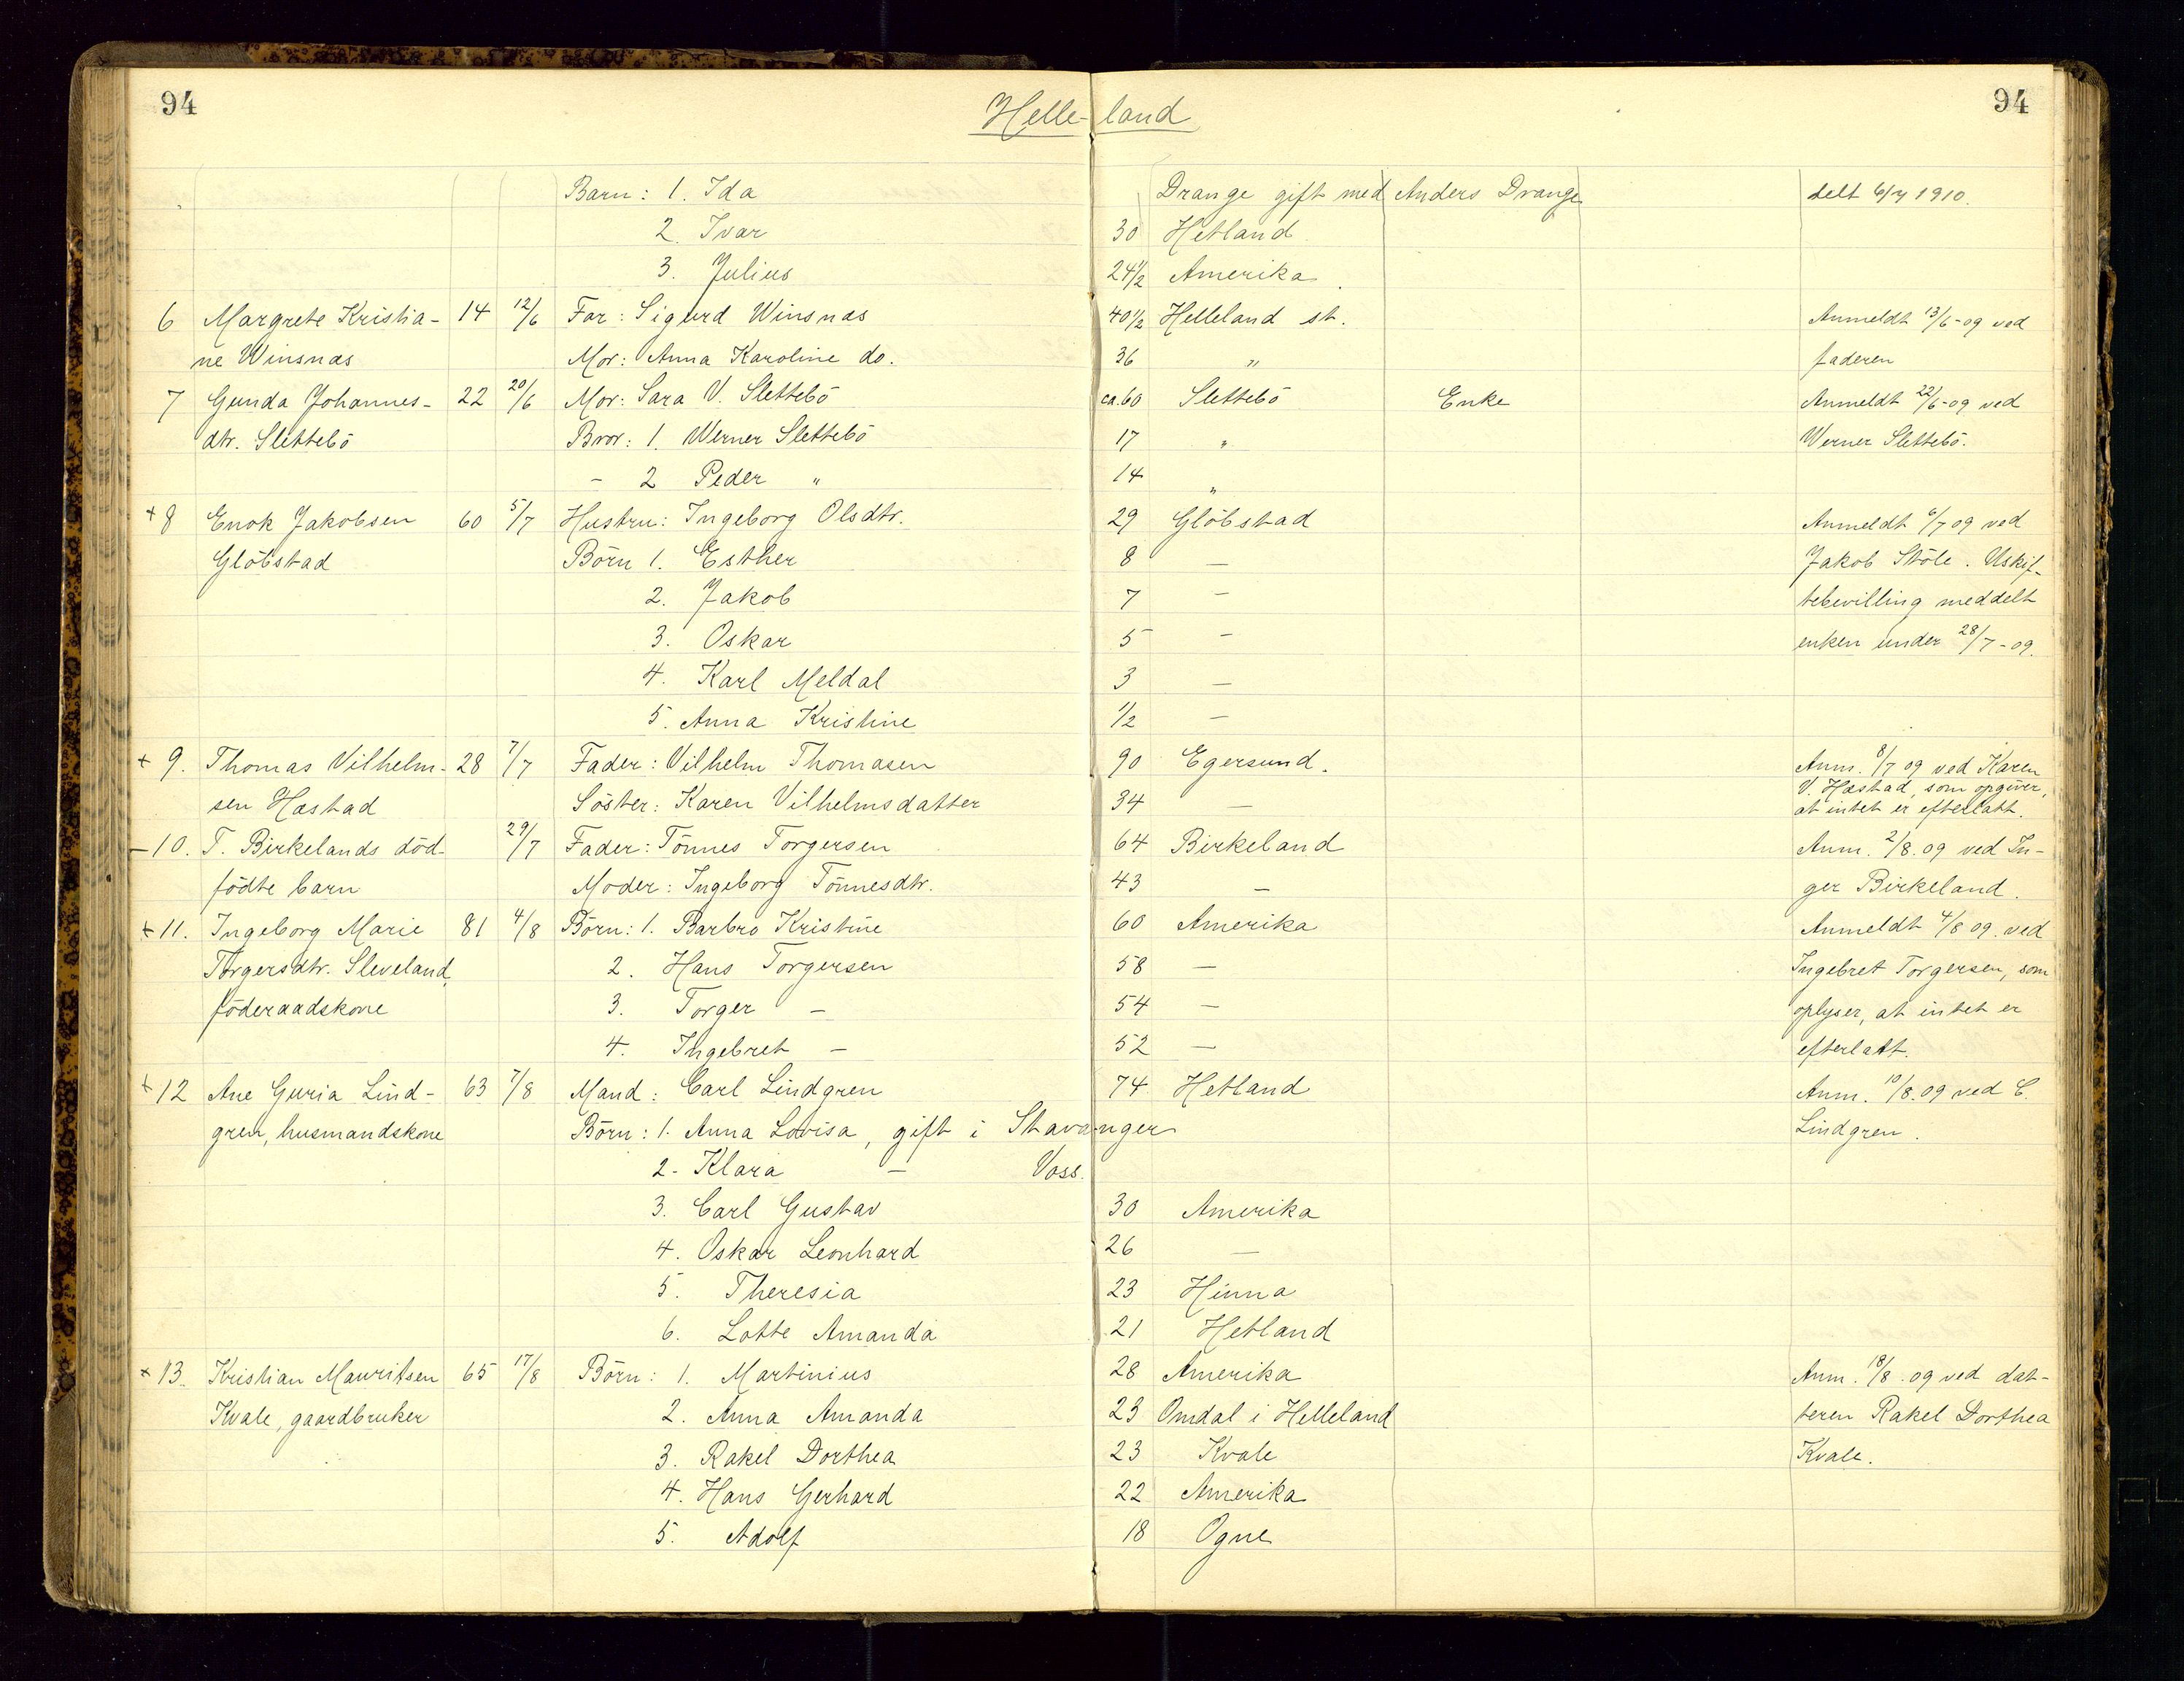 94 Helle-land 94
Barn: 1. Ida Drange gift med Anders Drange delt 6/4 1910.
2. Ivar 30 Hetland
3. Julius 24 1/2 Amerika
6 Margrete Kristia- 14 12/6 Far: Sigurd Winsnæs 40 1/2 Helleland st. Anmeldt 13/6-09 ved
ne Winsnæs Mor: Anna Karoline do. 36 " faderen
7 Gunda Johannes- 22 20/6 Mor: Sara V. Slettebö ca. 60 Slettebö Enke Anmeldt 22/6-09 ved
dtr. Slettebö Bror: 1. Werner Slettebö 17 " Werner Slettebö.
- 2 Peder " 14 "
+ 8 Enok Jakobsen 60 5/7 Hustru: Ingeborg Olsdtr. 29 Glöbstad Anmeldt 6/7 09 ved
Glöbstad Börn 1. Esther 8 — Jakob Stöle. Uskif-
2. Jakob 7 — tebevilling meddelt
3. Oskar 5 — enken under 28/7-09.
4. Karl Meldal 3 —
5. Anna Kristine 1/2 —
+ 9. Thomas Vilhelm- 28 7/7 Fader: Vilhelm Thomasen 90 Egersund. Anm. 8/7 09 ved Karen
sen Hæstad Söster: Karen Vilhelmsdatter 34 — V. Hæstad, som opgiver,
at intet er efterlatt.
— 10. T. Birkelands död- 29/7 Fader: Tönnes Torgersen 64 Birkeland Anm. 2/8.09 ved In-
födte barn Moder: Ingeborg Tönnesdtr. 43 — ger Birkeland.
+ 11. Ingeborg Marie 81 4/8 Börn: 1. Barbro Kristine 60 Amerika Anmeldt 4/8 09. ved
Torgersdtr. Sleveland, 2. Hans Torgersen 58 — Ingebret Torgersen, som
föderaadskone 3. Torger — 54 — oplyser, at intet er
4. Ingebret — 52 — efterlatt.
+ 12 Ane Guria Lind- 63 7/8 Mand: Carl Lindgren 74 Hetland Anm. 10/8.09 ved C.
gren, husmandskone Börn: 1. Anna Lovisa, gift i Stavanger Lindgren.
2. Klara — Voss.
3. Carl Gustav 30 Amerika
4. Oskar Leonhard 26 —
5. Theresia 23 Hinna
6. Lotte Amanda 21 Hetland
+ 13. Kristian Mauritsen 65 17/8 Börn: 1. Martinius 28 Amerika Anm. 18/8.09 ved dat-
Kvale, gaardbruker 2. Anna Amanda 23 Omdal i Helleland teren Rakel Dorthea
3. Rakel Dorthea 23 Kvale Kvale.
4. Hans Gerhard 22 Amerika
5. Adolf 18 Ogne